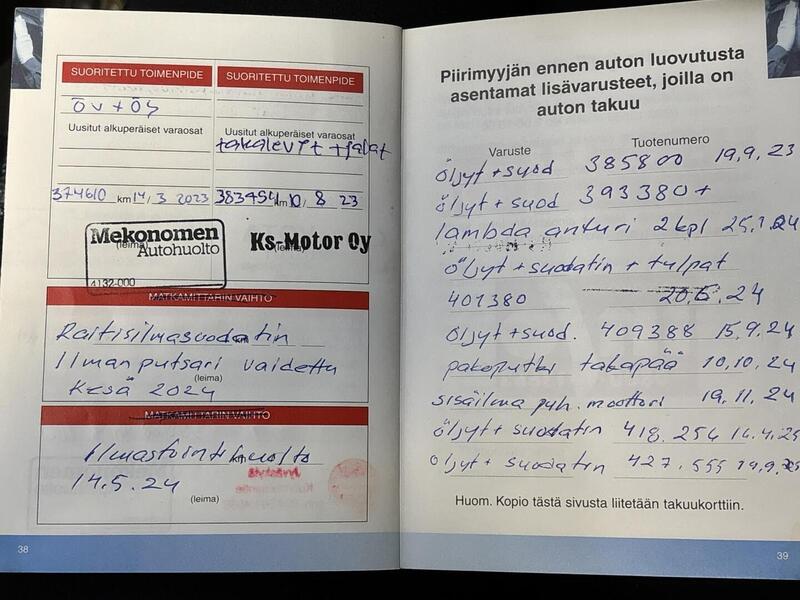 SUORITETTU TOIMENPIDE
ÖV + ÖS
Uusitut alkuperäiset varaosat
374610 km 14, 3 2023
Mekonomen
Autohuolto
(leima)
4132-000
SUORITETTU TOIMENPIDE
Uusitut alkuperäiset varaosat
takalevyt + palat
383454 km 10, 8 23
Ks-Motor Oy
(leima)
MATKAMITTARIN VAIHTO
Raitisilmasuodatin
km
Ilman putsari vaidettu
Kesä 2024
(leima)
MATKAMITTARIN VAIHTO
Ilmastointihuolto
km
14.5.24
(leima)
38
Piirimyyjän ennen auton luovutusta
asentamat lisävarusteet, joilla on
auton takuu
Varuste Tuotenumero
öljyt + suod 385800 19,9, 23
öljyt + suod 393380 +
lambda anturi 2 kpl 25,1.24
öljyt + suodatin + tulpat
401380 20,5, 24
öljyt + suod. 409388 15,9.24
pakoputki takapää 10,10, 24
sisäilma puh. moottori 19, 11, 24
öljyt + suodatin 418.254 14.4.25
öljyt + suodatin 427.555 19,9.25
Huom. Kopio tästä sivusta liitetään takuukorttiin.
39